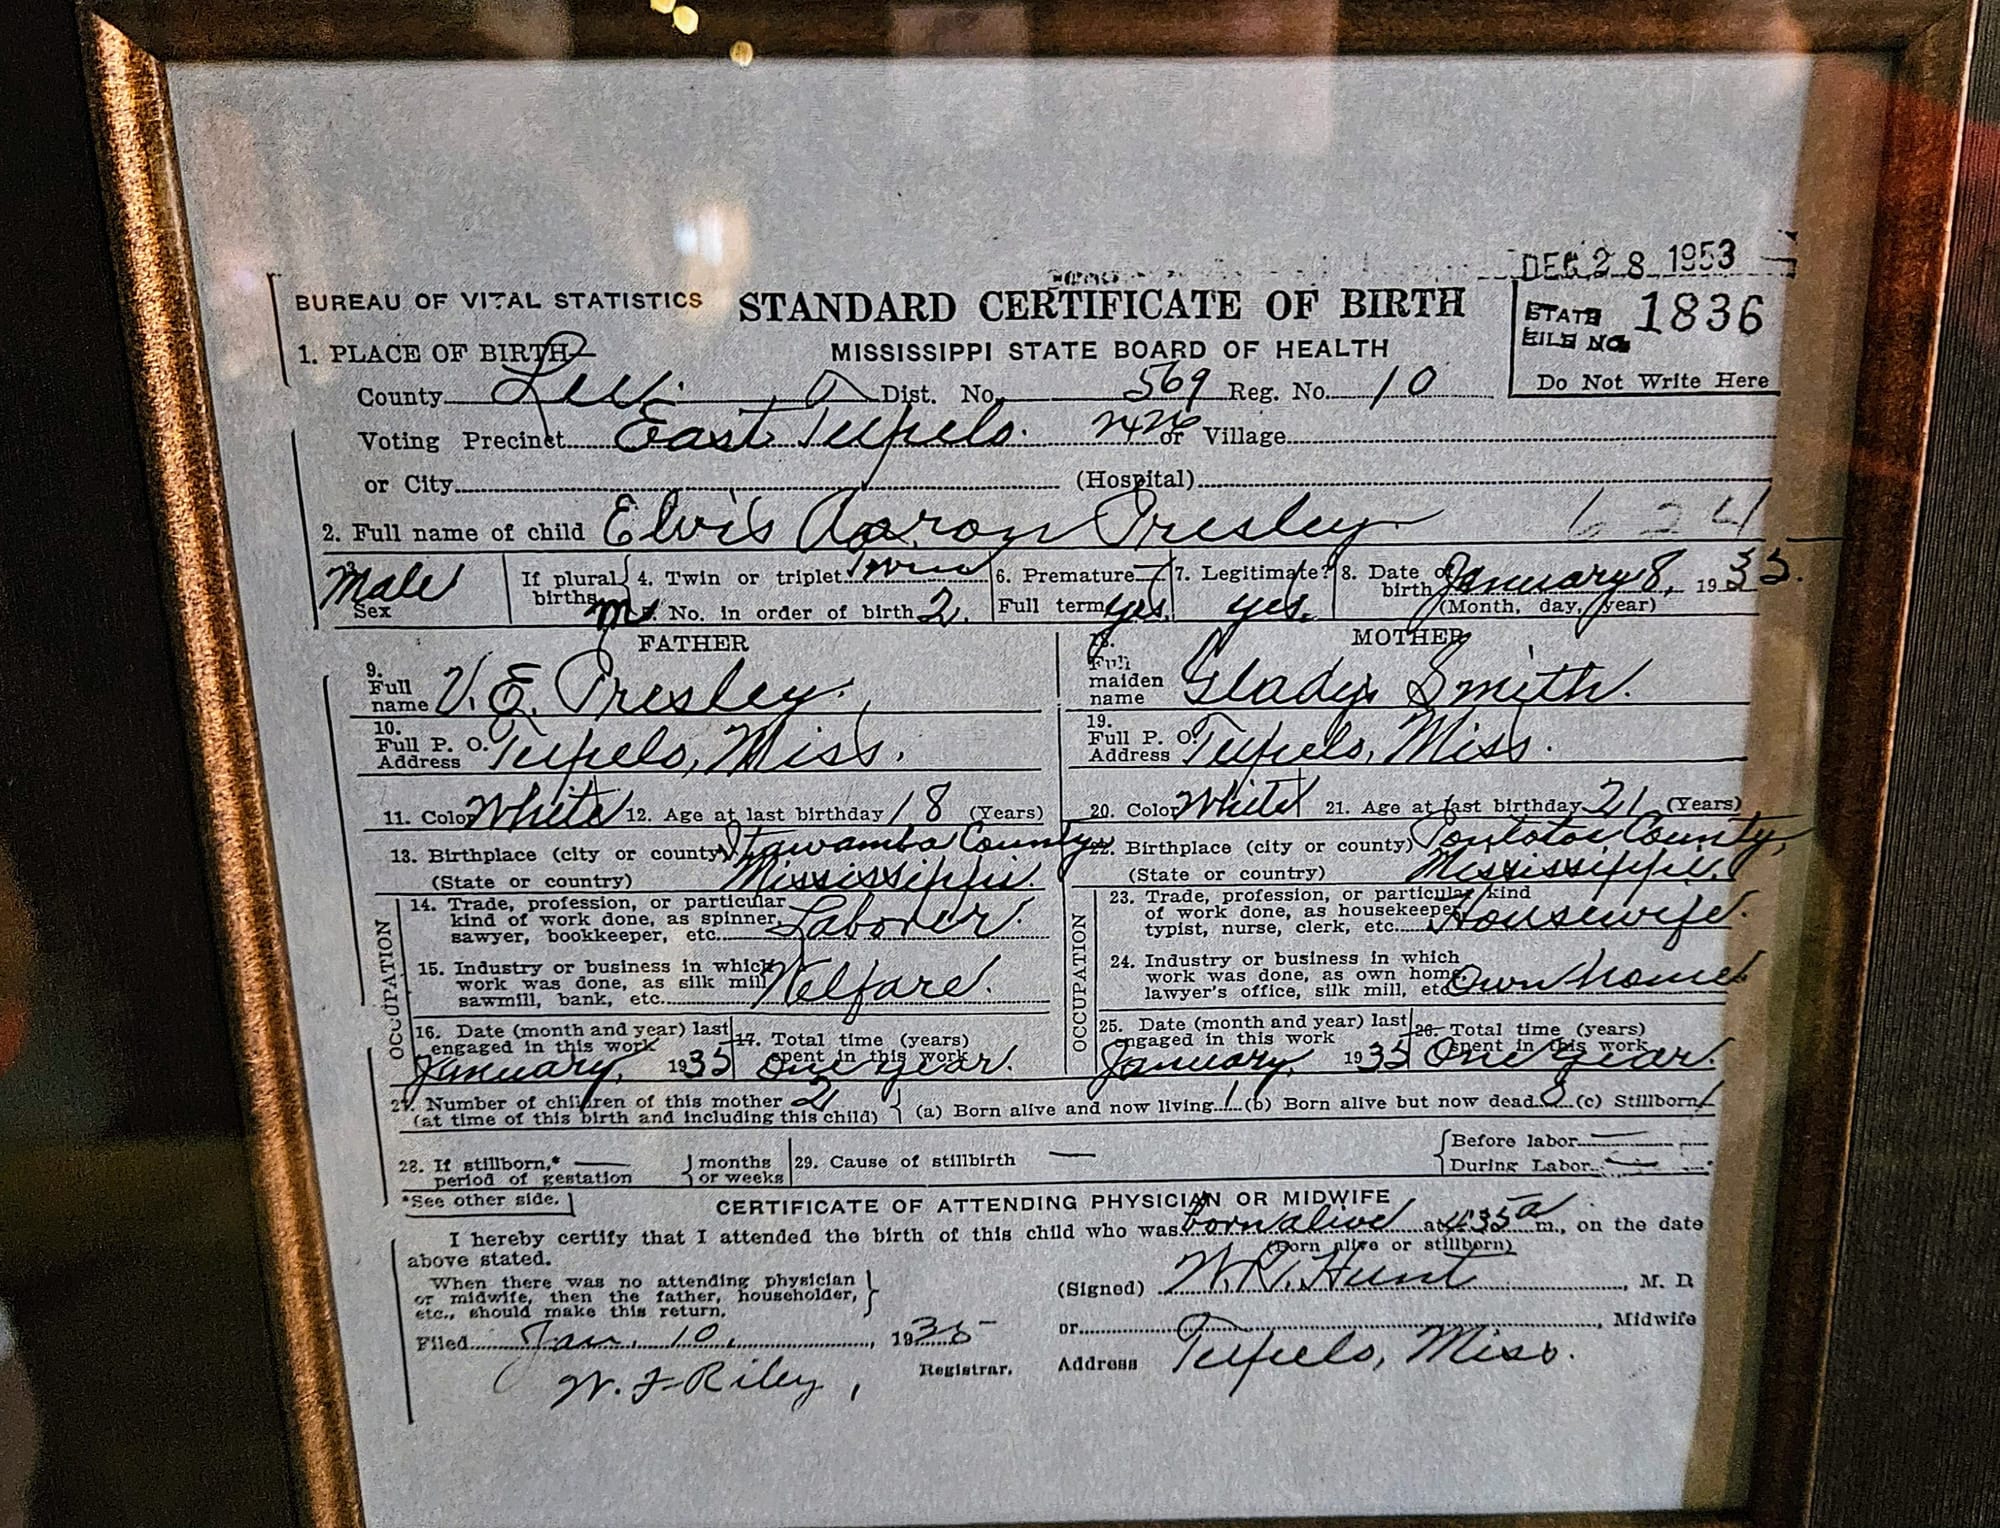 DEC 28 1953
BUREAU OF VITAL STATISTICS STANDARD CERTIFICATE OF BIRTH STATE FILE NO. 1836
1. PLACE OF BIRTH— MISSISSIPPI STATE BOARD OF HEALTH
County Lee Dist. No. 569 Reg. No. 10 Do Not Write Here
Voting Precinct East Tupelo. or Village
or City (Hospital)
2. Full name of child Elvis Aaron Presley 624
Male If plural births 4. Twin or triplet Twin 6. Premature 7. Legitimate? 8. Date of birth January 8, 1935.
Sex No. in order of birth 2. Full term yes. yes. (Month, day, year)
FATHER MOTHER
9. Full name V. E. Presley. 18. Full maiden name Gladys Smith.
10. Full P. O. Address Tupelo, Miss. 19. Full P. O. Address Tupelo, Miss.
11. Color White 12. Age at last birthday 18 (Years) 20. Color White 21. Age at last birthday 21 (Years)
13. Birthplace (city or county) Itawamba County 22. Birthplace (city or county) Pontotoc County,
(State or country) Mississippi. (State or country) Mississippi.
OCCUPATION OCCUPATION
14. Trade, profession, or particular 23. Trade, profession, or particular kind
kind of work done, as spinner, of work done, as housekeeper,
sawyer, bookkeeper, etc. Laborer. typist, nurse, clerk, etc. Housewife.
15. Industry or business in which 24. Industry or business in which
work was done, as silk mill, work was done, as own home,
sawmill, bank, etc. Welfare. lawyer's office, silk mill, etc. Own home
16. Date (month and year) last 17. Total time (years) 25. Date (month and year) last 26. Total time (years)
engaged in this work spent in this work engaged in this work spent in this work
January, 1935 One year. January, 1935 One year.
27. Number of children of this mother 2
(at time of this birth and including this child) (a) Born alive and now living 1 (b) Born alive but now dead 0 (c) Stillborn 1
28. If stillborn,* — months 29. Cause of stillbirth — Before labor —
period of gestation or weeks During Labor —
*See other side. CERTIFICATE OF ATTENDING PHYSICIAN OR MIDWIFE
I hereby certify that I attended the birth of this child who was born alive at 435 a m., on the date
above stated. (Born alive or stillborn)
When there was no attending physician
or midwife, then the father, householder,
etc., should make this return. (Signed) W. R. Hunt, M. D
Filed Jan. 10, 1935 or Midwife
W. F. Riley, Registrar. Address Tupelo, Miss.